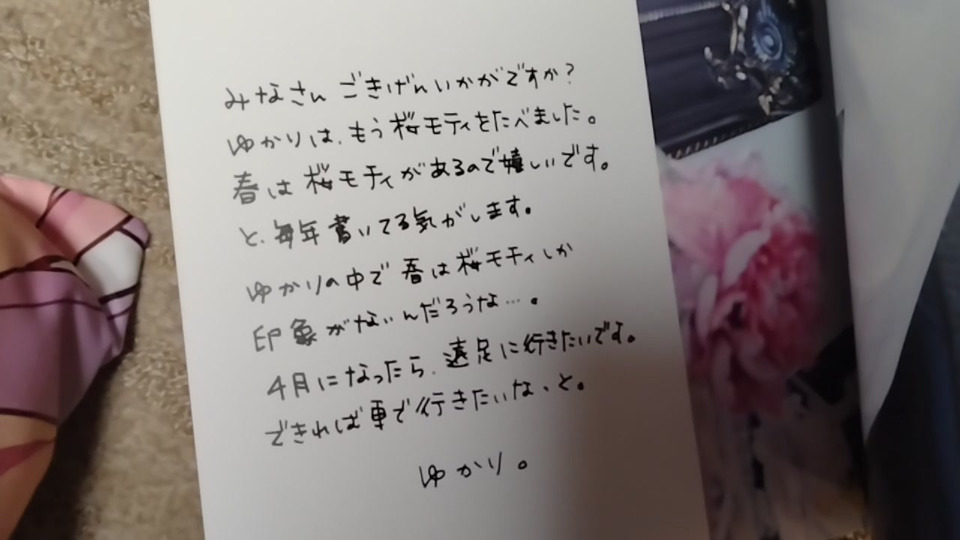 みなさん ごきげんいかがですか?
ゆかりは、もう桜モティをたべました。
春は桜モティがあるので嬉しいです。
と、毎年書いてる気がします。
ゆかりの中で春は桜モティしか
印象がないんだろうな…。
4月になったら、遠足に行きたいです。
できれば車で行きたいな、と。
ゆかり。